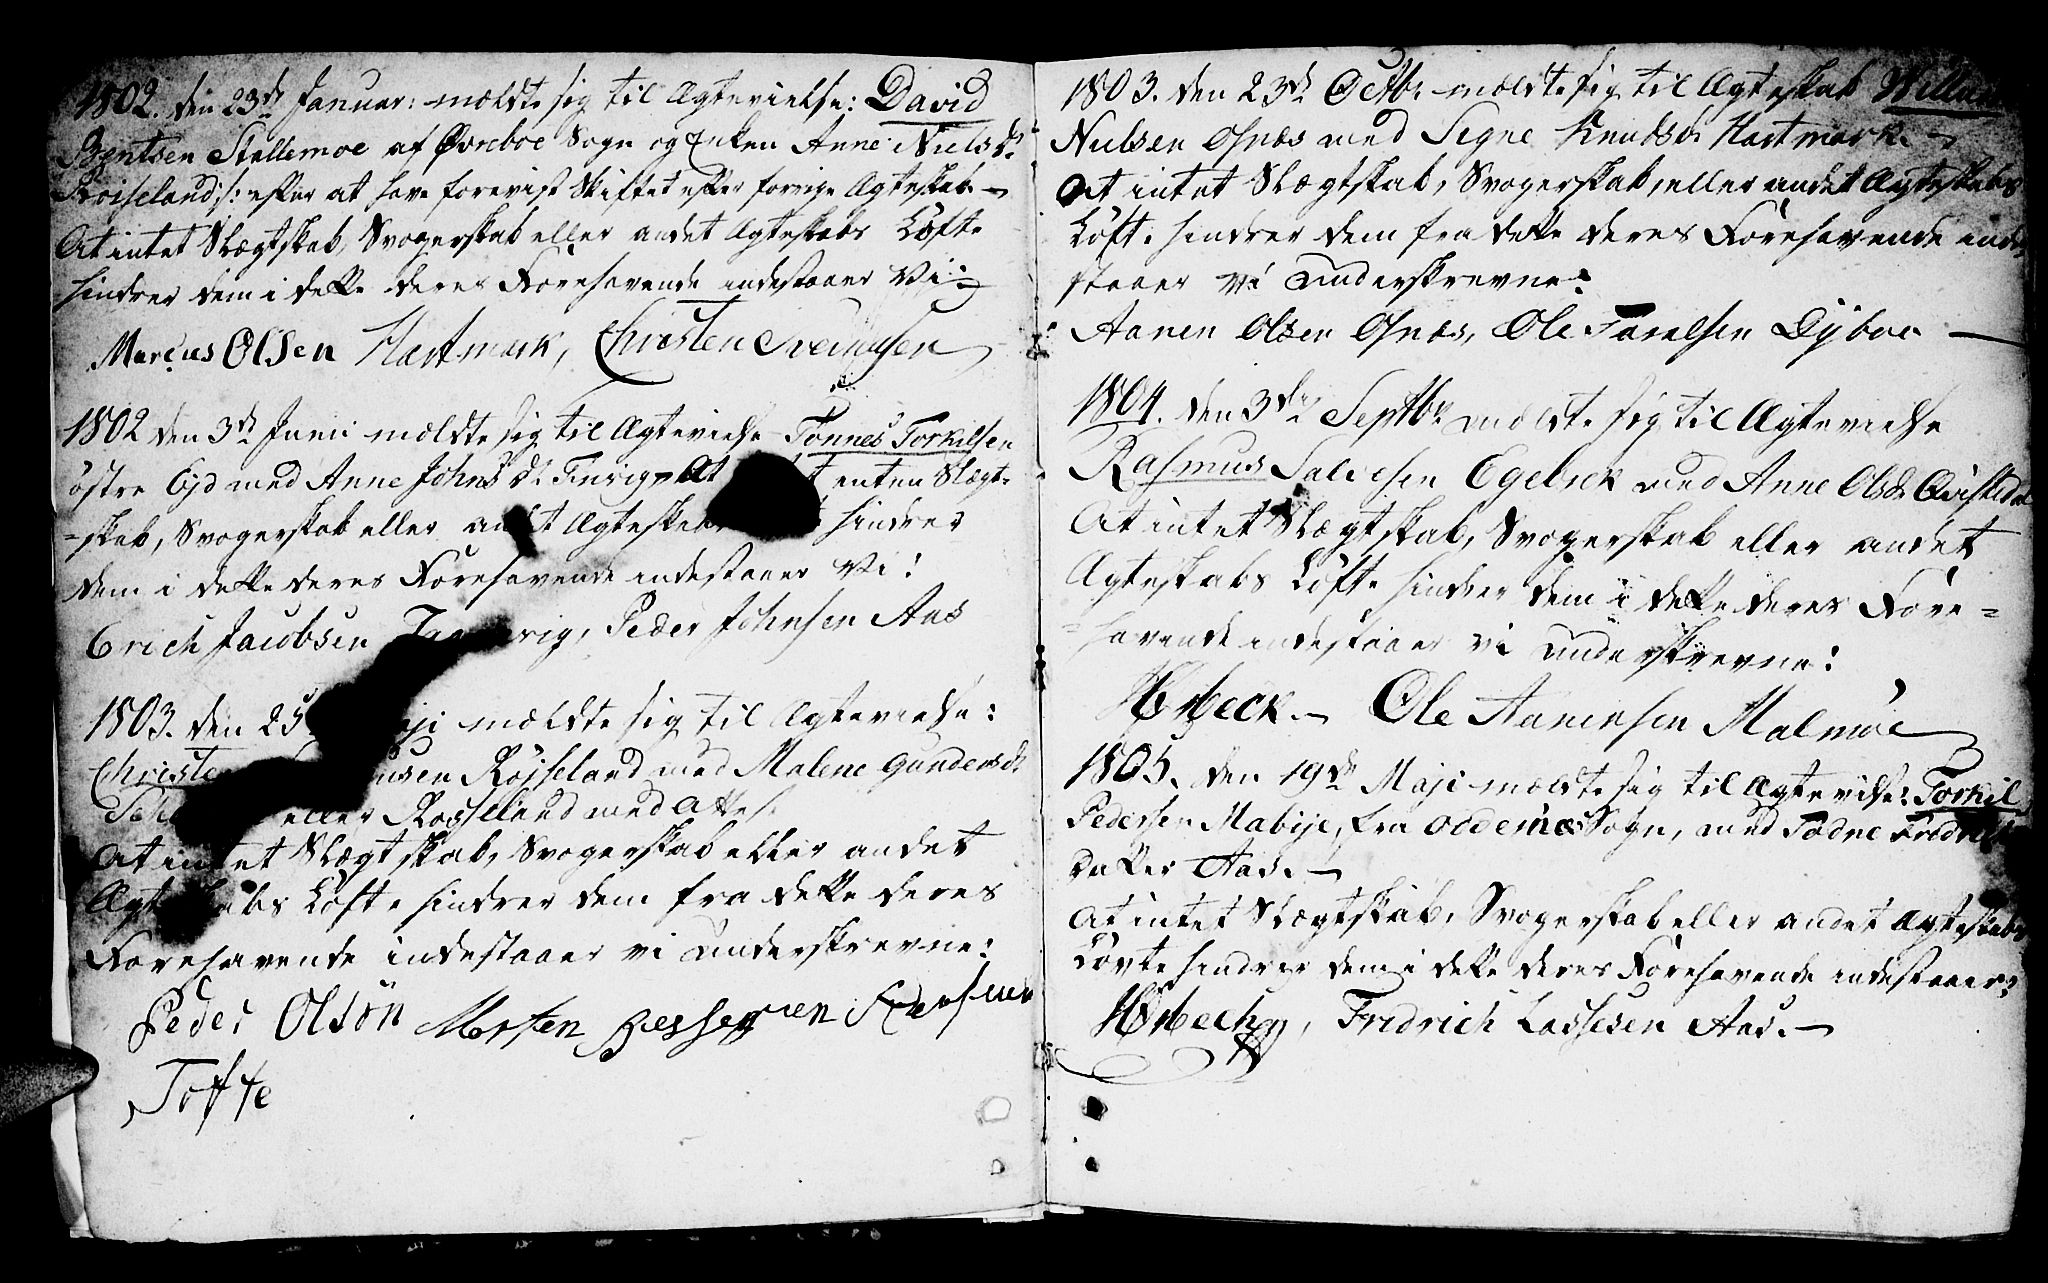 1802. den 23de Januar: meldte sig til Ægtevielse: David
Bentsen Stallemoe af Øvreboe Sogn og Enken Anne Nielsdr
Røiseland /: efter at have forevist Skiftet efter forrige Ægteskab. —
At intet Slægtskab, Svogerskab eller andet Ægteskabs Løfte
hindrer dem i dette deres Forehavende indestaaer Vi:
Marcus Olsen Hartmark, Christen Svennsen
1802 den 3de Junii meldte sig til Ægtevielse Tønnes Torkilsen
østre Eyd med Anne Johnsdr Finvig — At enten Slægt-
-skab, Svogerskab eller andet hindrer
dem i dette deres Forehavende indestaaer Vi:
Erich Jacobsen Peder Johnsen Aas
1803. den 25 Maji meldte sig til Ægtevielse:
Christen Røiseland med Malene Gundersdr
eller Rosseland med Attest.
At intet Slægtskab, Svogerskab eller andet
Ægteskabs Løfte hindrer dem fra dette deres
Forehavende indestaaer vi underskrevne:
Peder Olsön Morten
Tofte
1803. den 23de Octbr meldte sig til Ægteskab Willum
Nielsen Osnæs med Segne Knudsdr Hartmark. —
At intet Slægtskab, Svogerskab, eller andet Ægteskabs
Løfte hindrer dem fra dette deres Forehavende inde-
staaer vi underskrevne:
Aanen Olsen Osnæs, Ole Tarelsen Dyboe —
1804. den 3de Septbr meldte sig til Ægtevielse
Rasmus Salvesen Egebek med Anne Olsdr Qvisledal
At intet Slægtskab, Svogerskab eller andet
Ægteskabs Løfte hindrer dem i dette deres Fore-
-havende indestaaer vi underskrevne:
Hørbeck. — Ole Aanensen Malmøe
1805. den 19de Maji meldte sig til Ægtevielse: Torkil
Pedersen Mabije, fra Oddernæs Sogn, med Todne Fredrichs
Datter Aas. —
At intet Slægtskab, Svogerskab eller andet Ægteskabs
Løvte hindrer dem i dette deres Forehavende indestaaer:
Hørbech, Fridrich Lassesen Aas. —